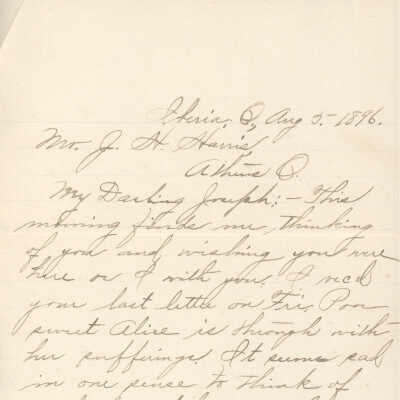 Iberia, O., Aug 5- 1896.
Mr. J. H. Harris,
Athens O.
My Darling Joseph:- This
morning finds me, thinking
of you and wishing you were
here or I with you. I rec'd
your last letter on Fri. Poor
sweet Alice is through with
her sufferings. It seems sad
in one sense to think of